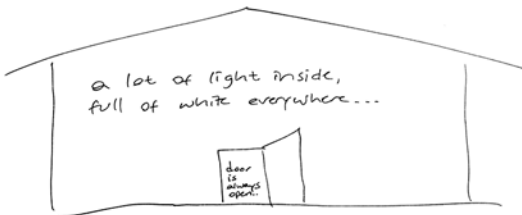 a lot of light inside,
full of white everywhere...
door
is
always
open..